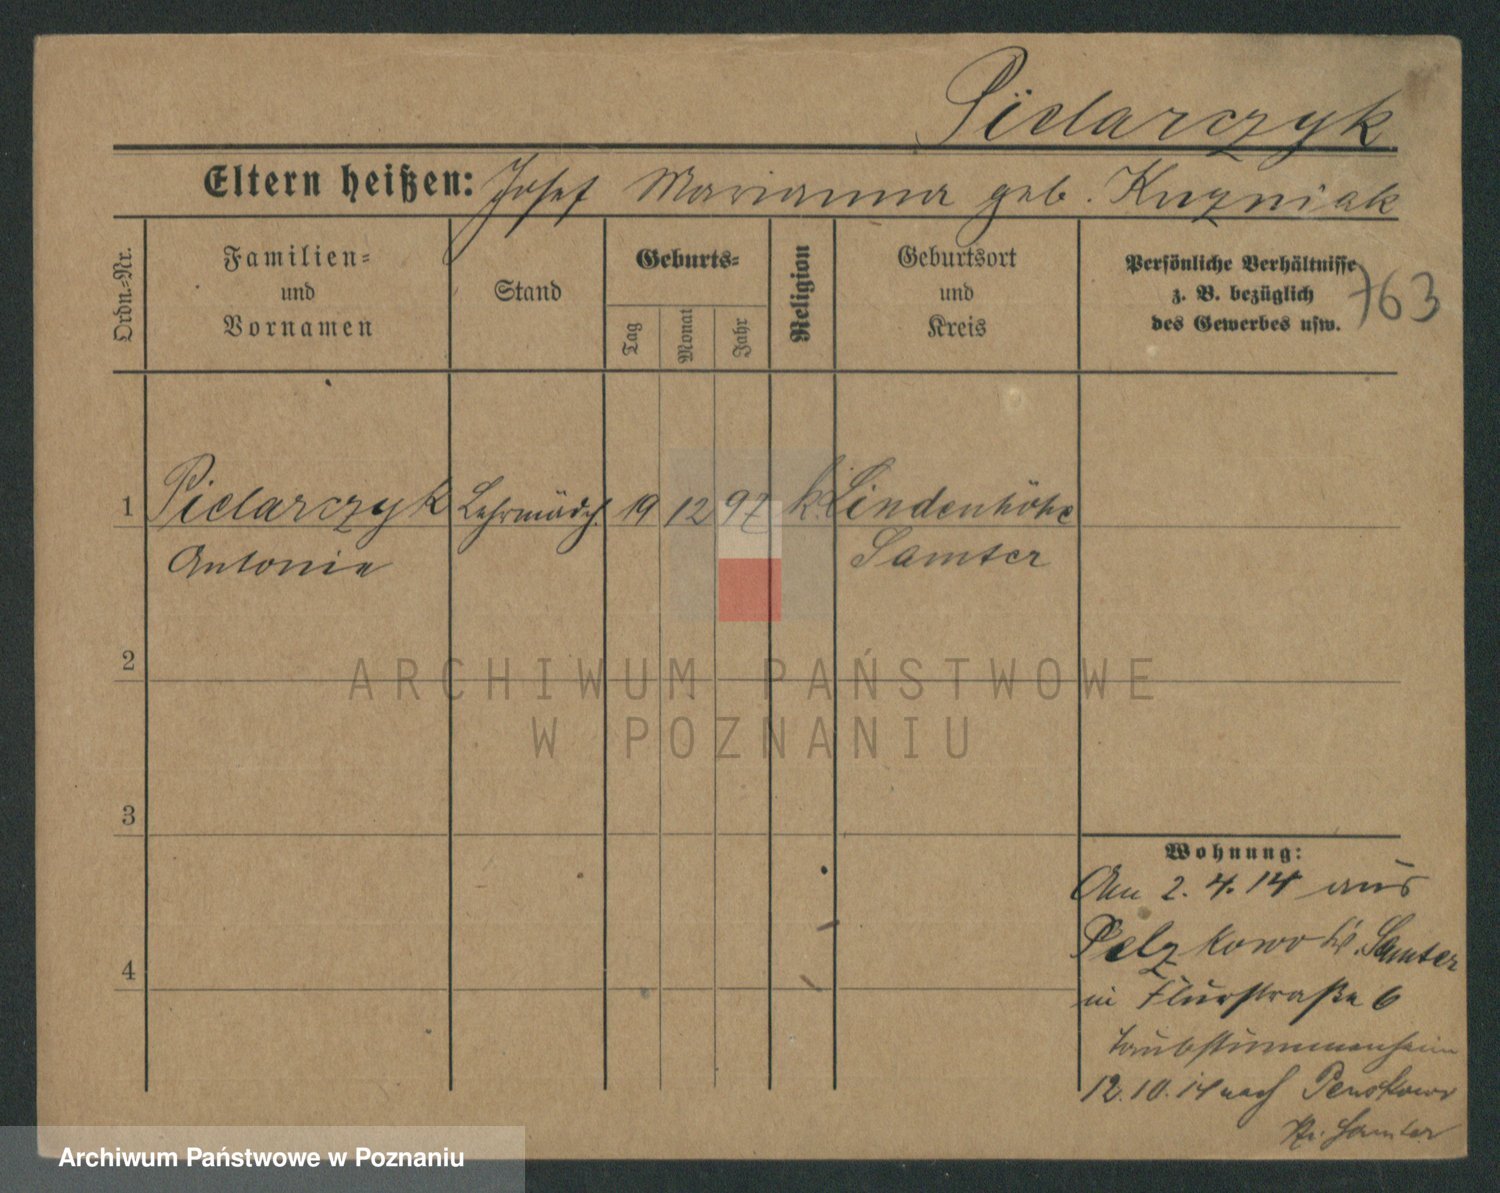 Pielarczyk
Eltern heißen: Josef Marianna geb. Kuzniak
Ordn.-Nr.
Familien-
und
Vornamen
Stand
Geburts-
Tag
Monat
Jahr
Religion
Geburtsort
und
Kreis
Persönliche Verhältnisse
z. B. bezüglich
des Gewerbes usw.
763
1 Pielarczyk Lehrmädch. 19 12 97 k. Lindenhöhe
Antonie Samter
2
ARCHIWUM PAŃSTWOWE
W POZNANIU
3
Wohnung:
Am 2.4.14 aus
Pelzkowo Kr. Samter
4
in Flurstraße 6
Taubstummenheim
12.10.14 nach Penskowo
Kr. Samter
Archiwum Państwowe w Poznaniu